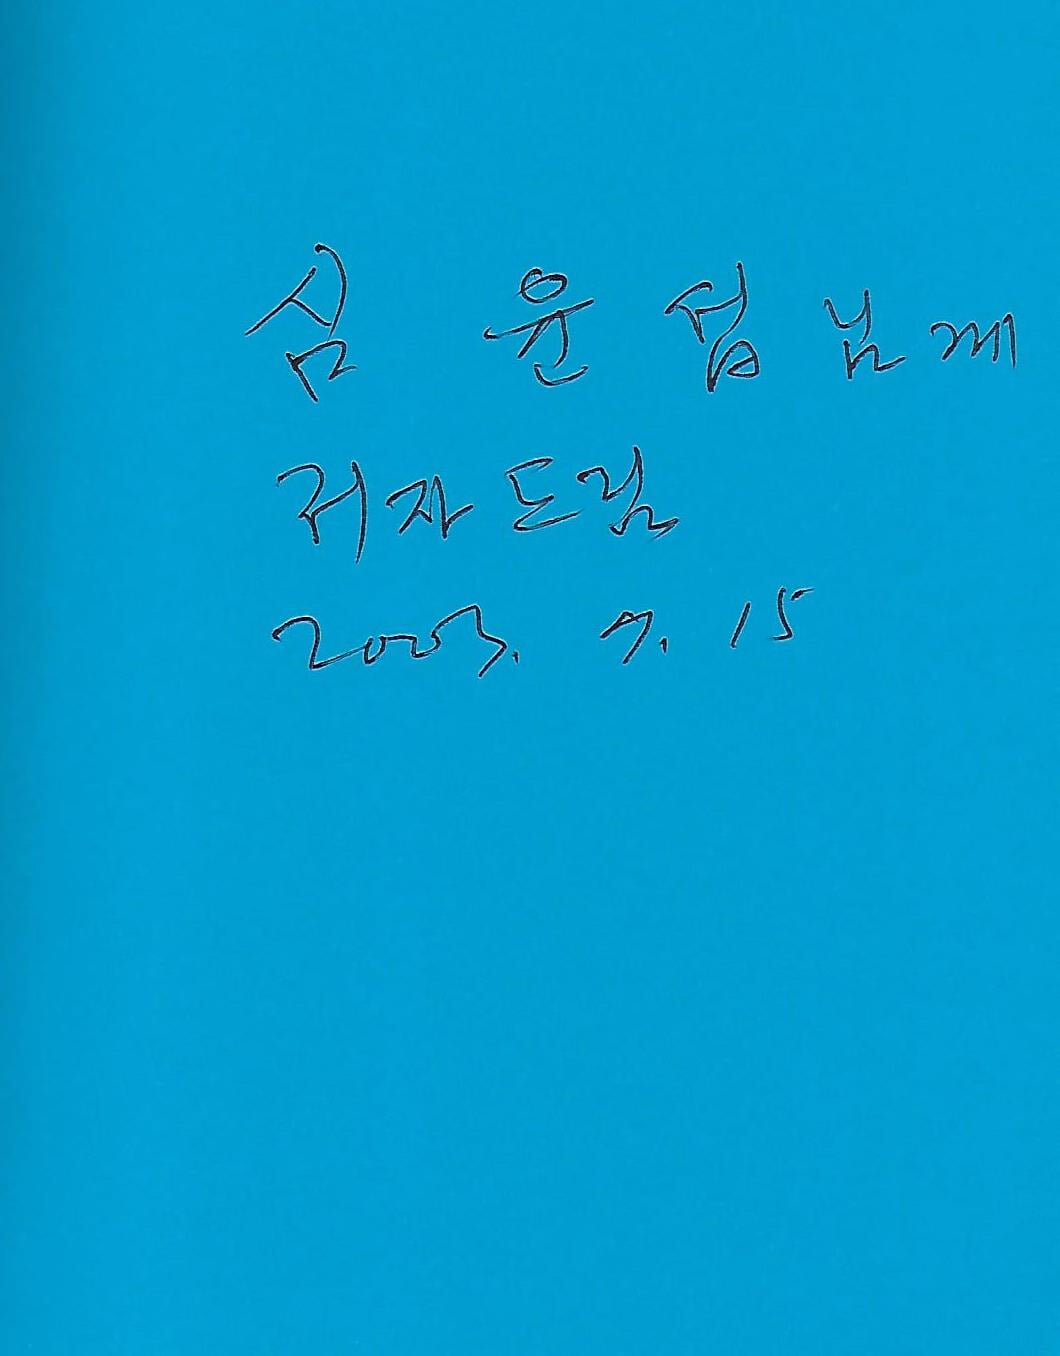 심 윤 섭 님께
저자 드림
2003. 7. 15